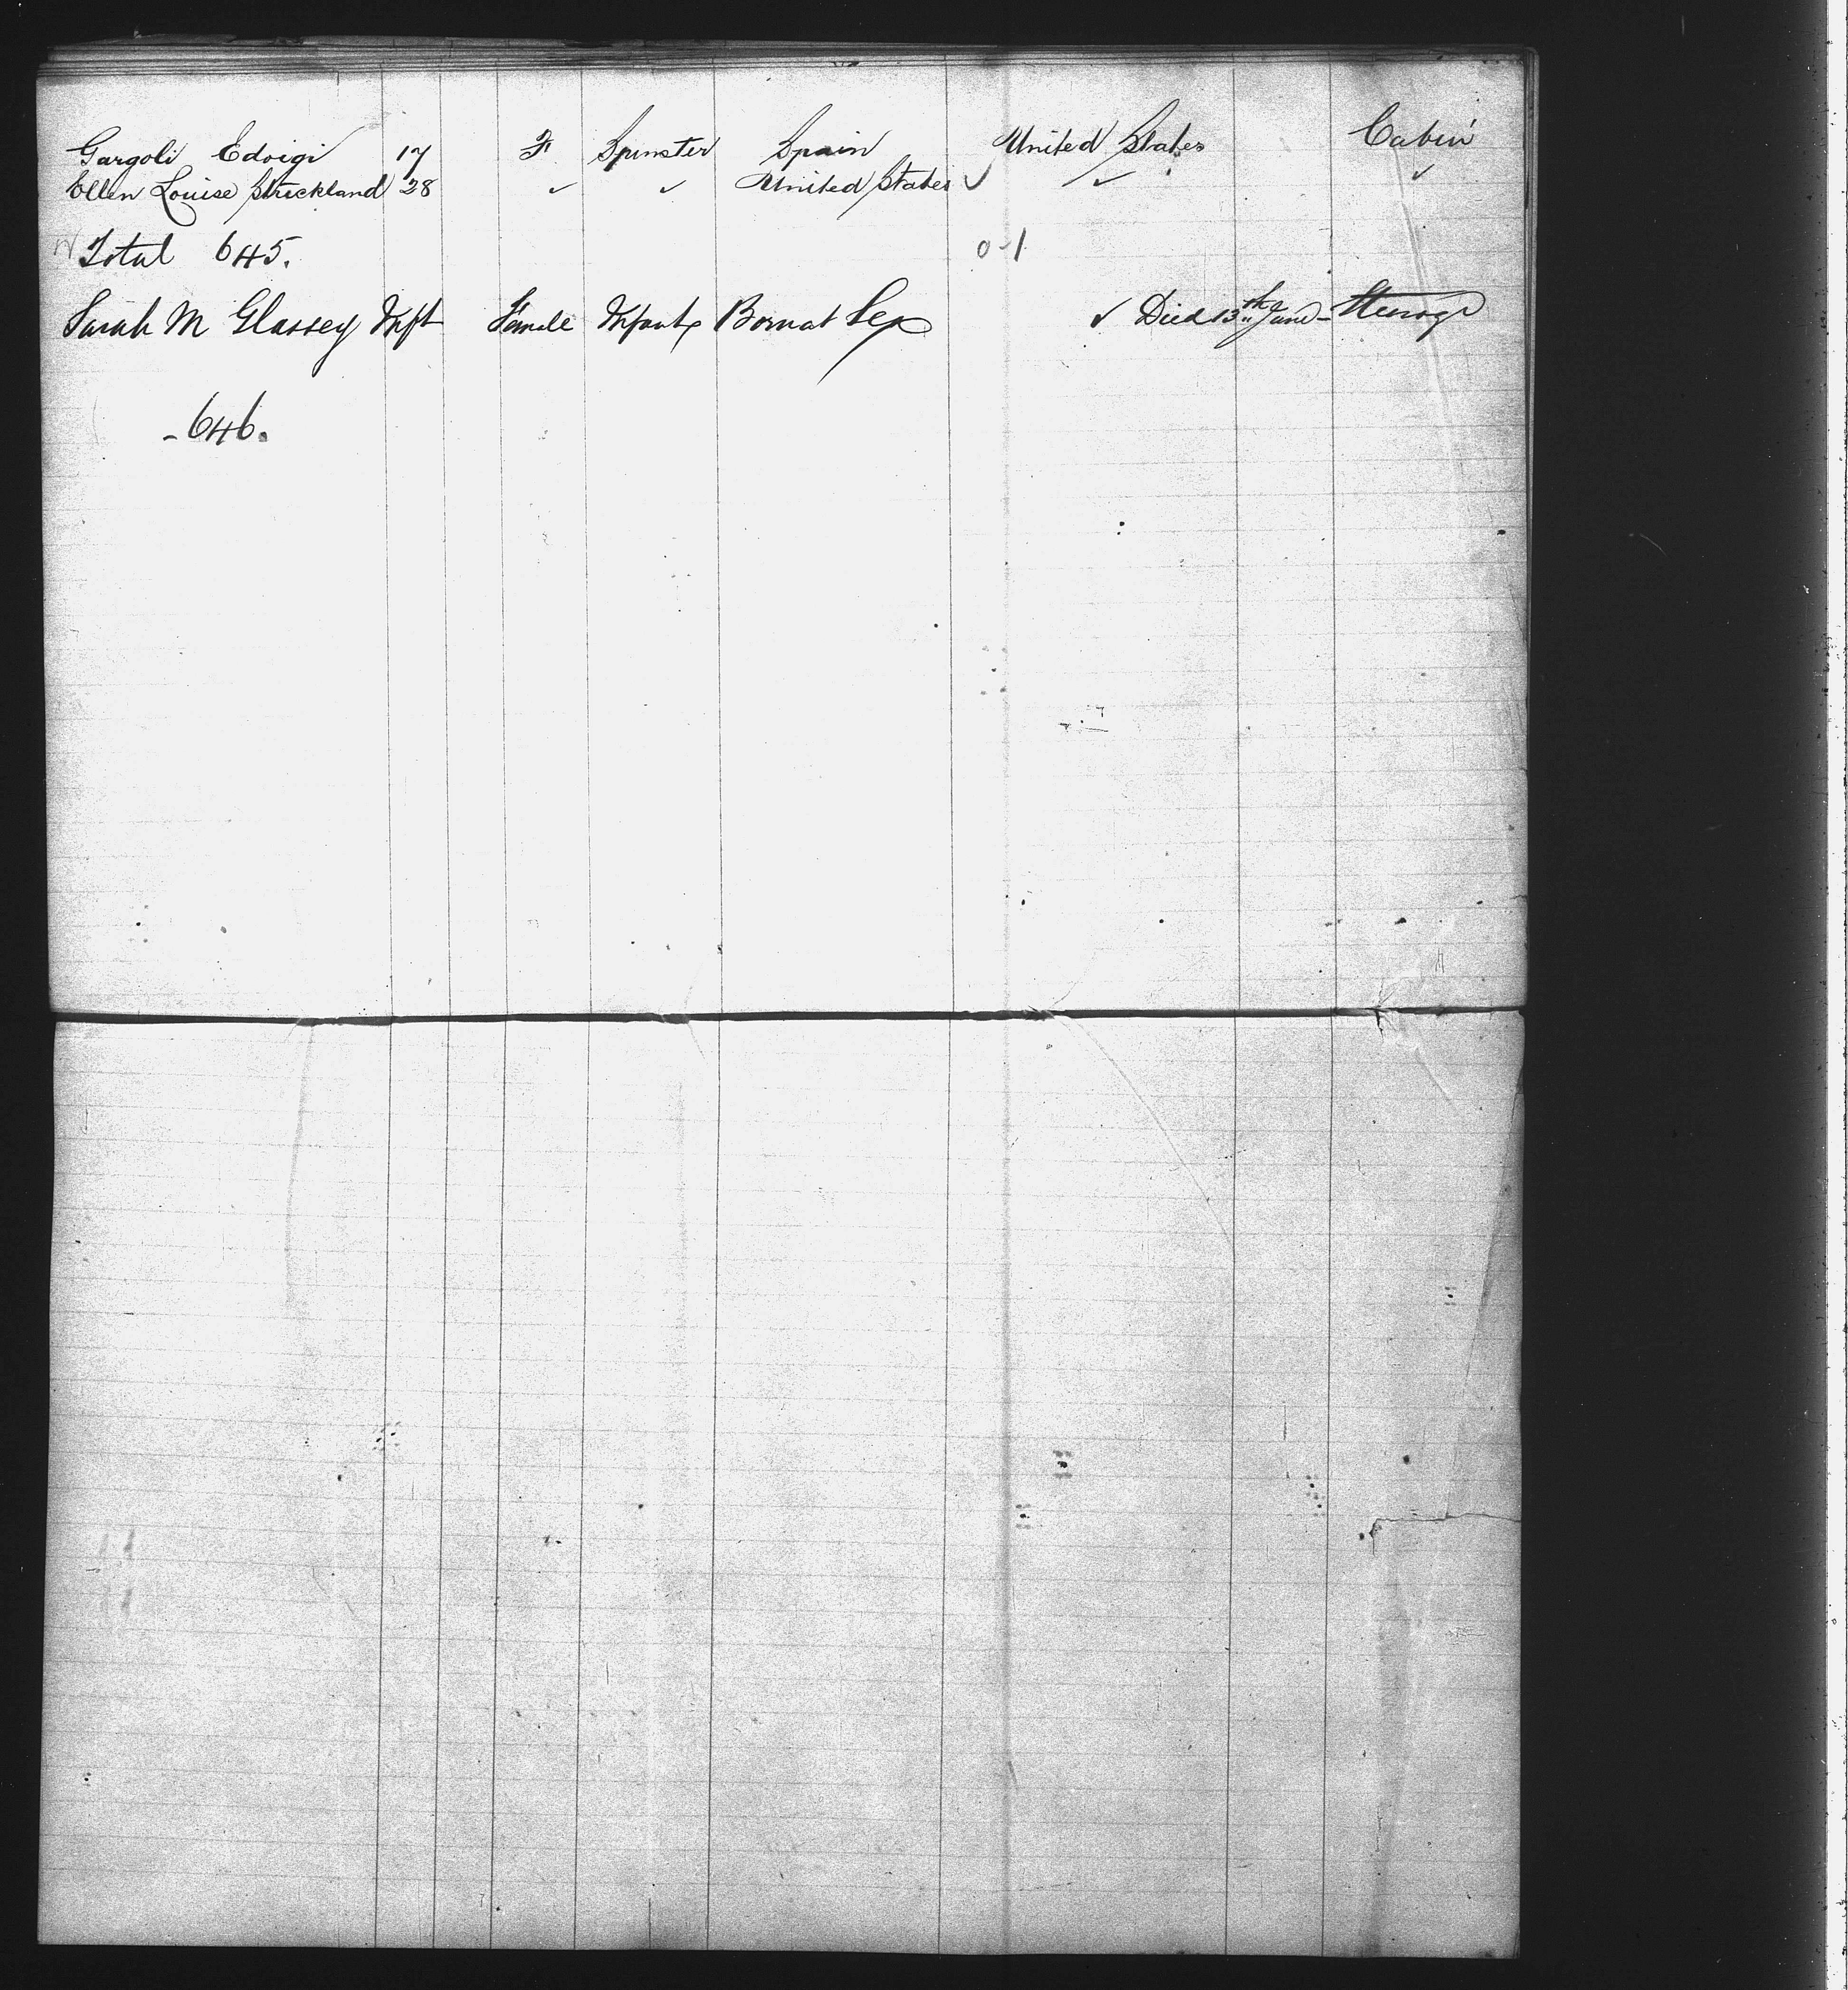 Gargoli Edvigi 17 F Spinster Spain United States Cabin
Ellen Louise Strickland 28 ✓ ✓ United States ✓ ✓ ✓
Total 645. 0-1
Sarah M Glassey Inft Female Infant Born at Sea ✓ Died 13th June - Steerage
- 646.